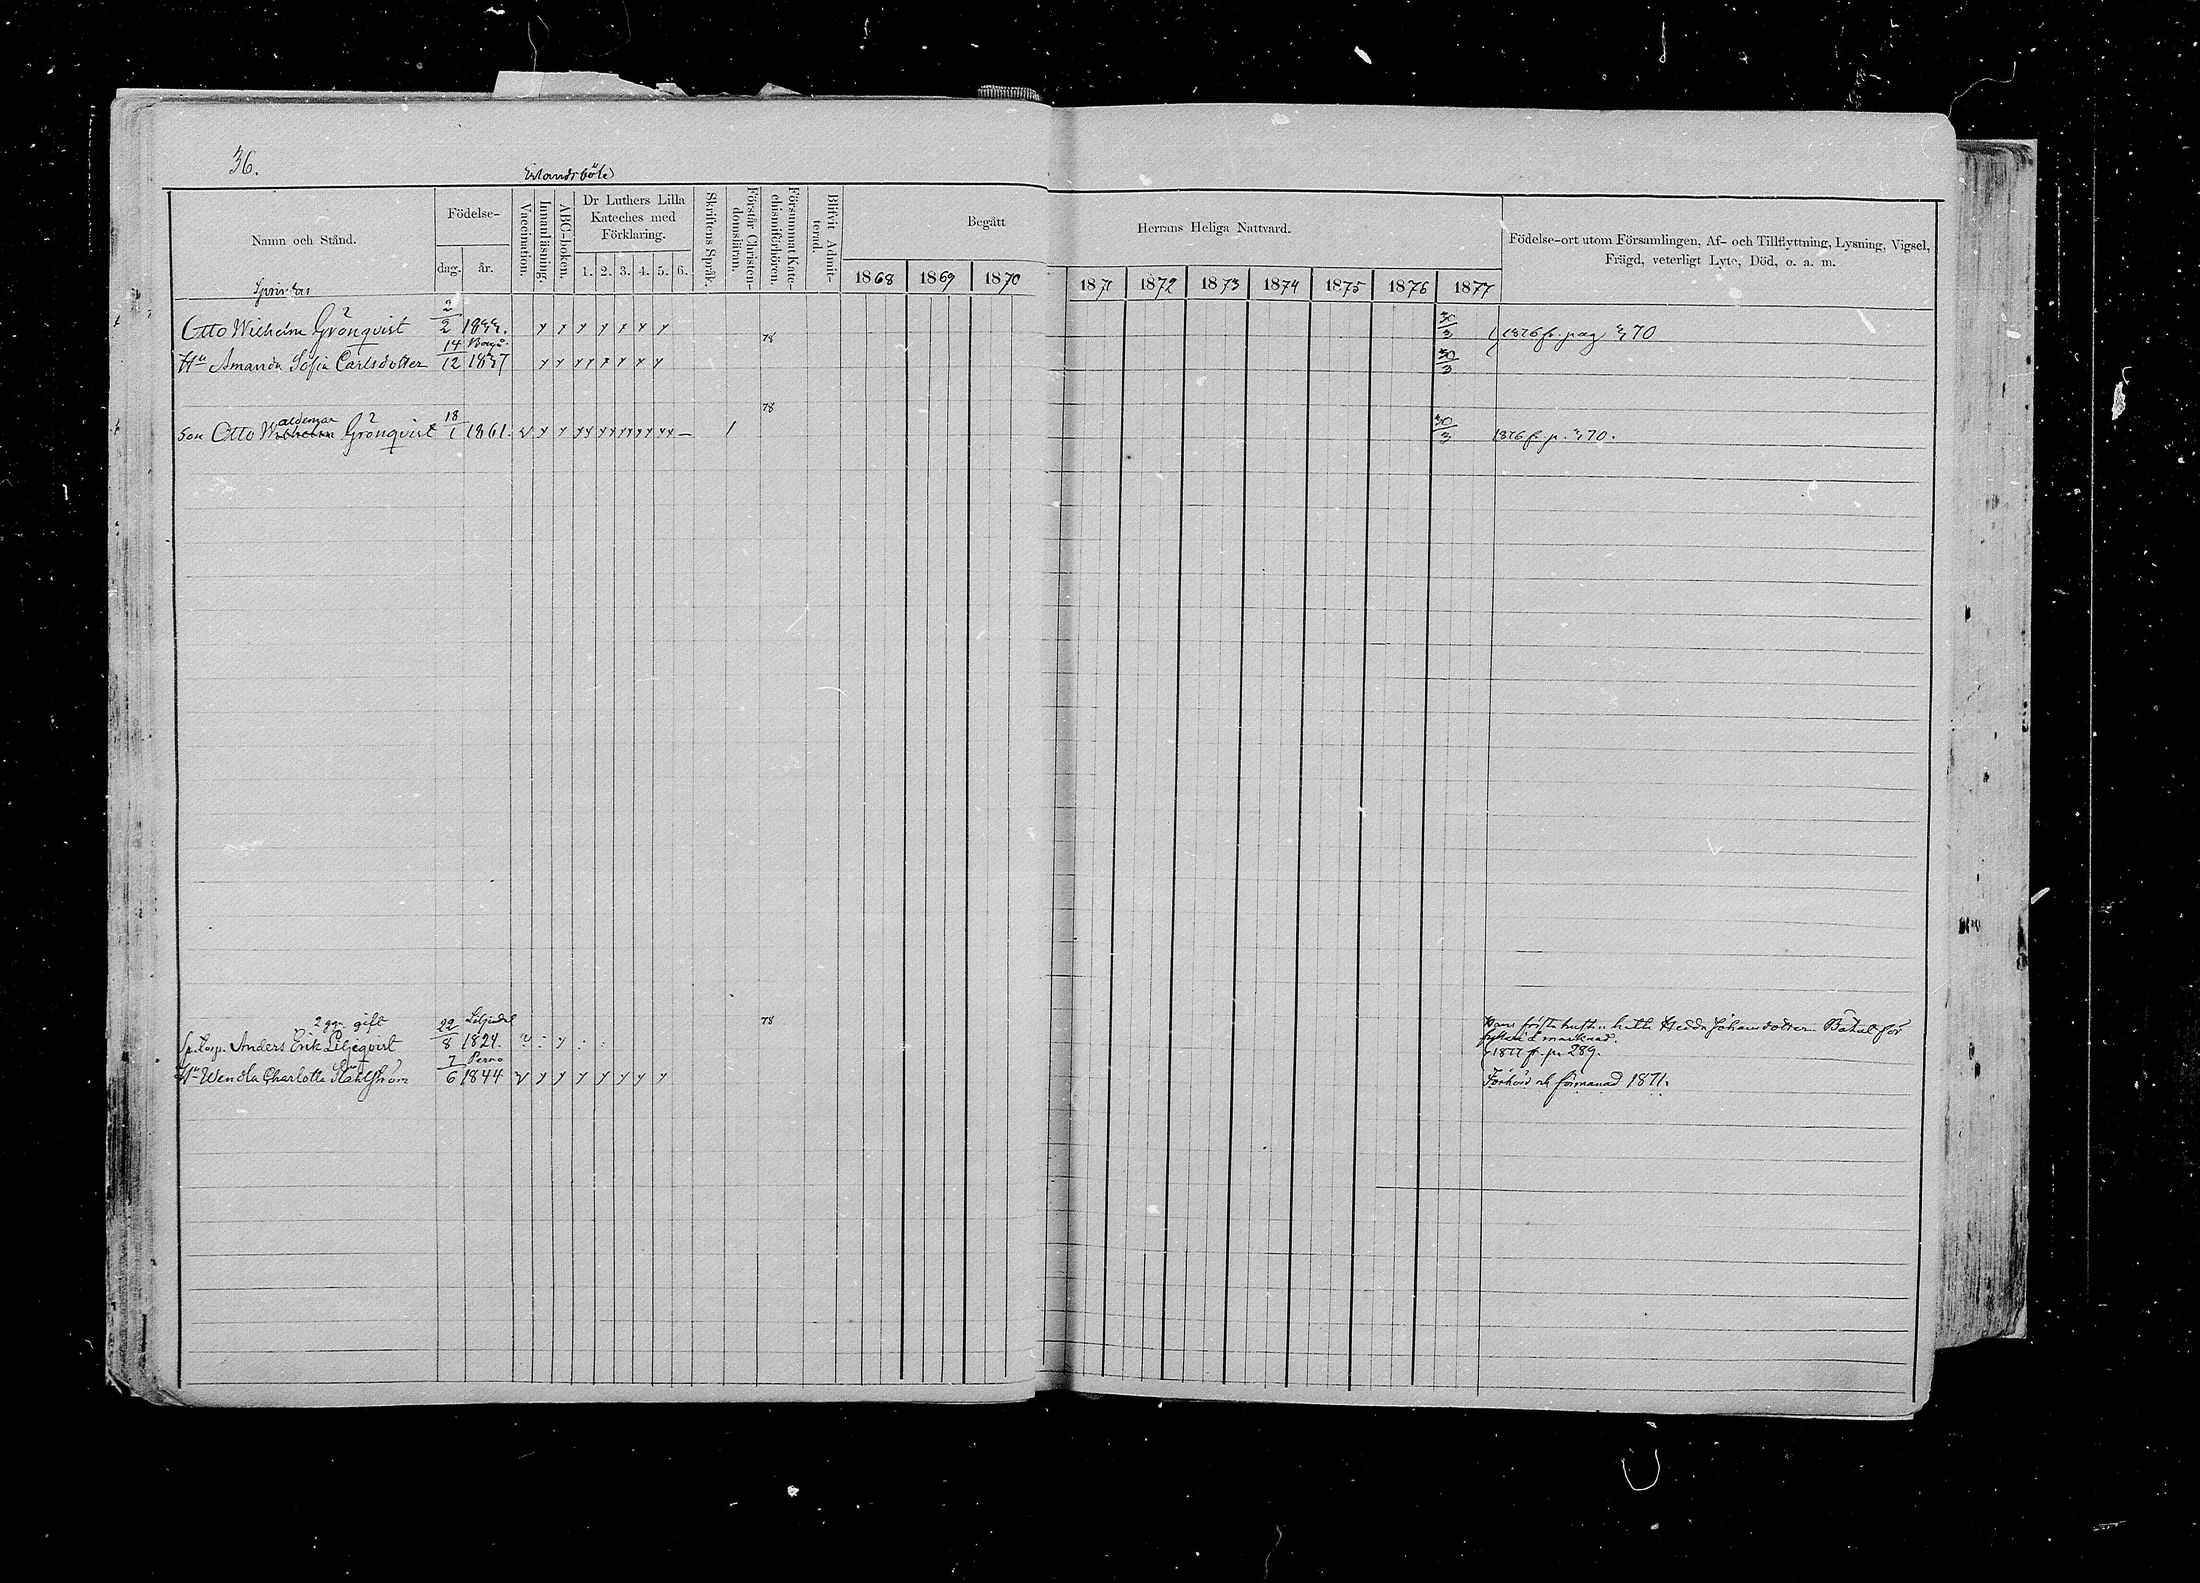 36.
Erlandsböle
Namn och Stånd.
Födelse-
dag. år.
Vaccination.
Innanläsning.
ABC-boken.
Dr Luthers Lilla Kateches med Förklaring.
1. 2. 3. 4. 5. 6.
Skriftens Språk.
Förstår Christendomsläran.
Försummat Katechismiförhören.
Blifvit Admitterad.
Begått Herrans Heliga Nattvard.
1868 1869 1870 1871 1872 1873 1874 1875 1876 1877
Födelse-ort utom Församlingen, Af- och Tillflyttning, Lysning, Vigsel,
Frägd, veterligt Lyte, Död, o. a. m.
Otto Wilhelm Grönqvist 2/2 1833. 78 30/3 1876 fr. pag 370
Hu Amanda Sofia Carlsdotter 14/12 Borgå 1837 30/3
78
Son Otto Waldemar Grönqvist 18/1 1861. v 30/3 1876 fr. p. 370.
2 ggr. gift 22/8 Liljendal 78
Anders Erik Liljeqvist 1824.
Hans första hustru hette Hedda Johansdotter. Bötat för
fylleri å marknad.
1877 fr. p. 289.
Hu Wendla Charlotta Ståhlström 7/6 Perno 1844 v Förhörd och förmanad 1871.